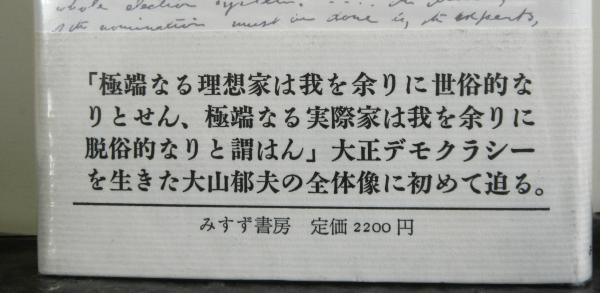 whole election system.
nomination must be done by the experts,
「極端なる理想家は我を余りに世俗的な
りとせん、極端なる実際家は我を余りに
脱俗的なりと謂はん」大正デモクラシー
を生きた大山郁夫の全体像に初めて迫る。
みすず書房 定価2200円